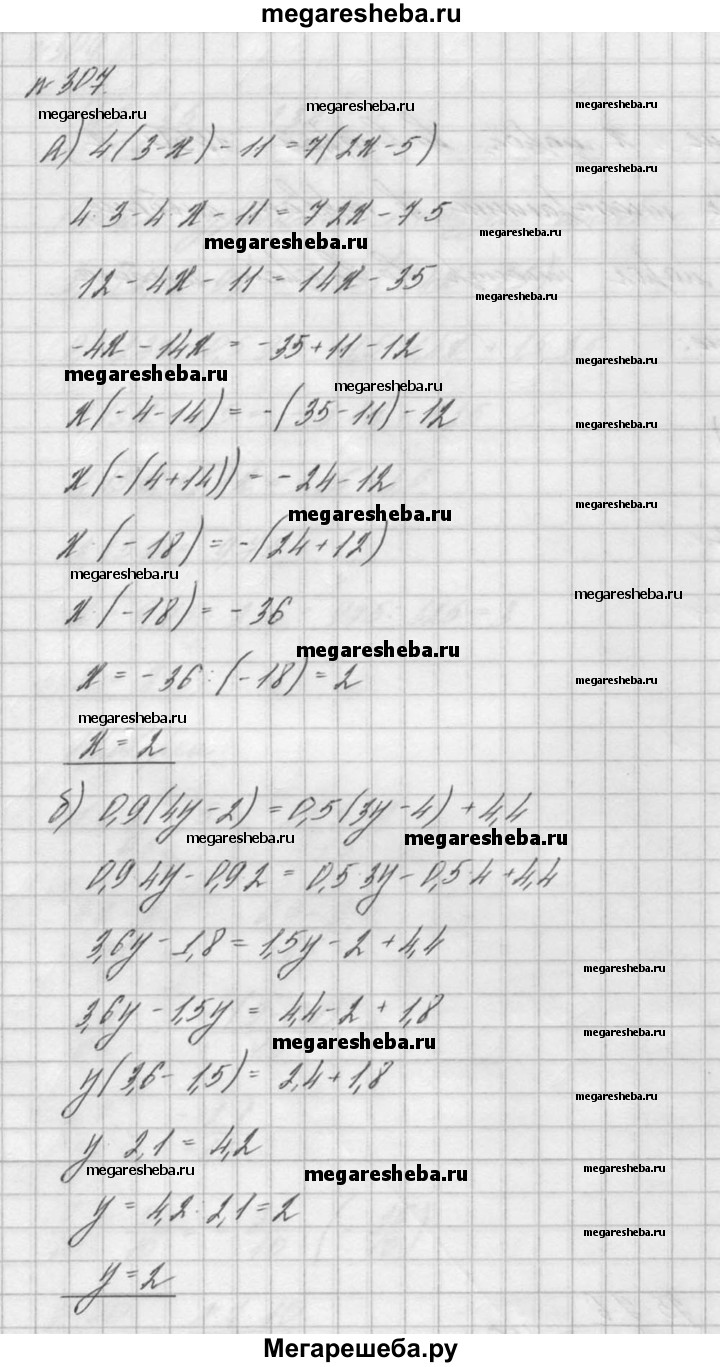 megaresheba.ru
№ 307.
megaresheba.ru megaresheba.ru megaresheba.ru
а) 4(3-x) - 11 = 7(2x - 5)
megaresheba.ru
4·3 - 4·x - 11 = 7·2x - 7·5
megaresheba.ru megaresheba.ru
12 - 4x - 11 = 14x - 35
megaresheba.ru
-4x - 14x = -35 + 11 - 12
megaresheba.ru megaresheba.ru megaresheba.ru
x(-4-14) = -(35-11) - 12
megaresheba.ru
x(-(4+14)) = -24 - 12
megaresheba.ru megaresheba.ru
x·(-18) = -(24+12)
megaresheba.ru megaresheba.ru
x·(-18) = -36
megaresheba.ru
x = -36 : (-18) = 2
megaresheba.ru
megaresheba.ru
x = 2
б) 0,9(4y - 2) = 0,5(3y - 4) + 4,4
megaresheba.ru megaresheba.ru
0,9·4y - 0,9·2 = 0,5·3y - 0,5·4 + 4,4
3,6y - 1,8 = 1,5y - 2 + 4,4
megaresheba.ru
3,6y - 1,5y = 4,4 - 2 + 1,8
megaresheba.ru megaresheba.ru
y(3,6 - 1,5) = 2,4 + 1,8
megaresheba.ru
y·2,1 = 4,2
megaresheba.ru megaresheba.ru megaresheba.ru
y = 4,2 : 2,1 = 2
megaresheba.ru
y = 2
Мегарешеба.ру